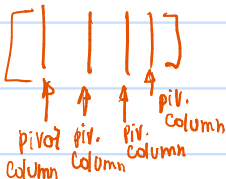 pivot column
piv. column
piv. column
piv. column